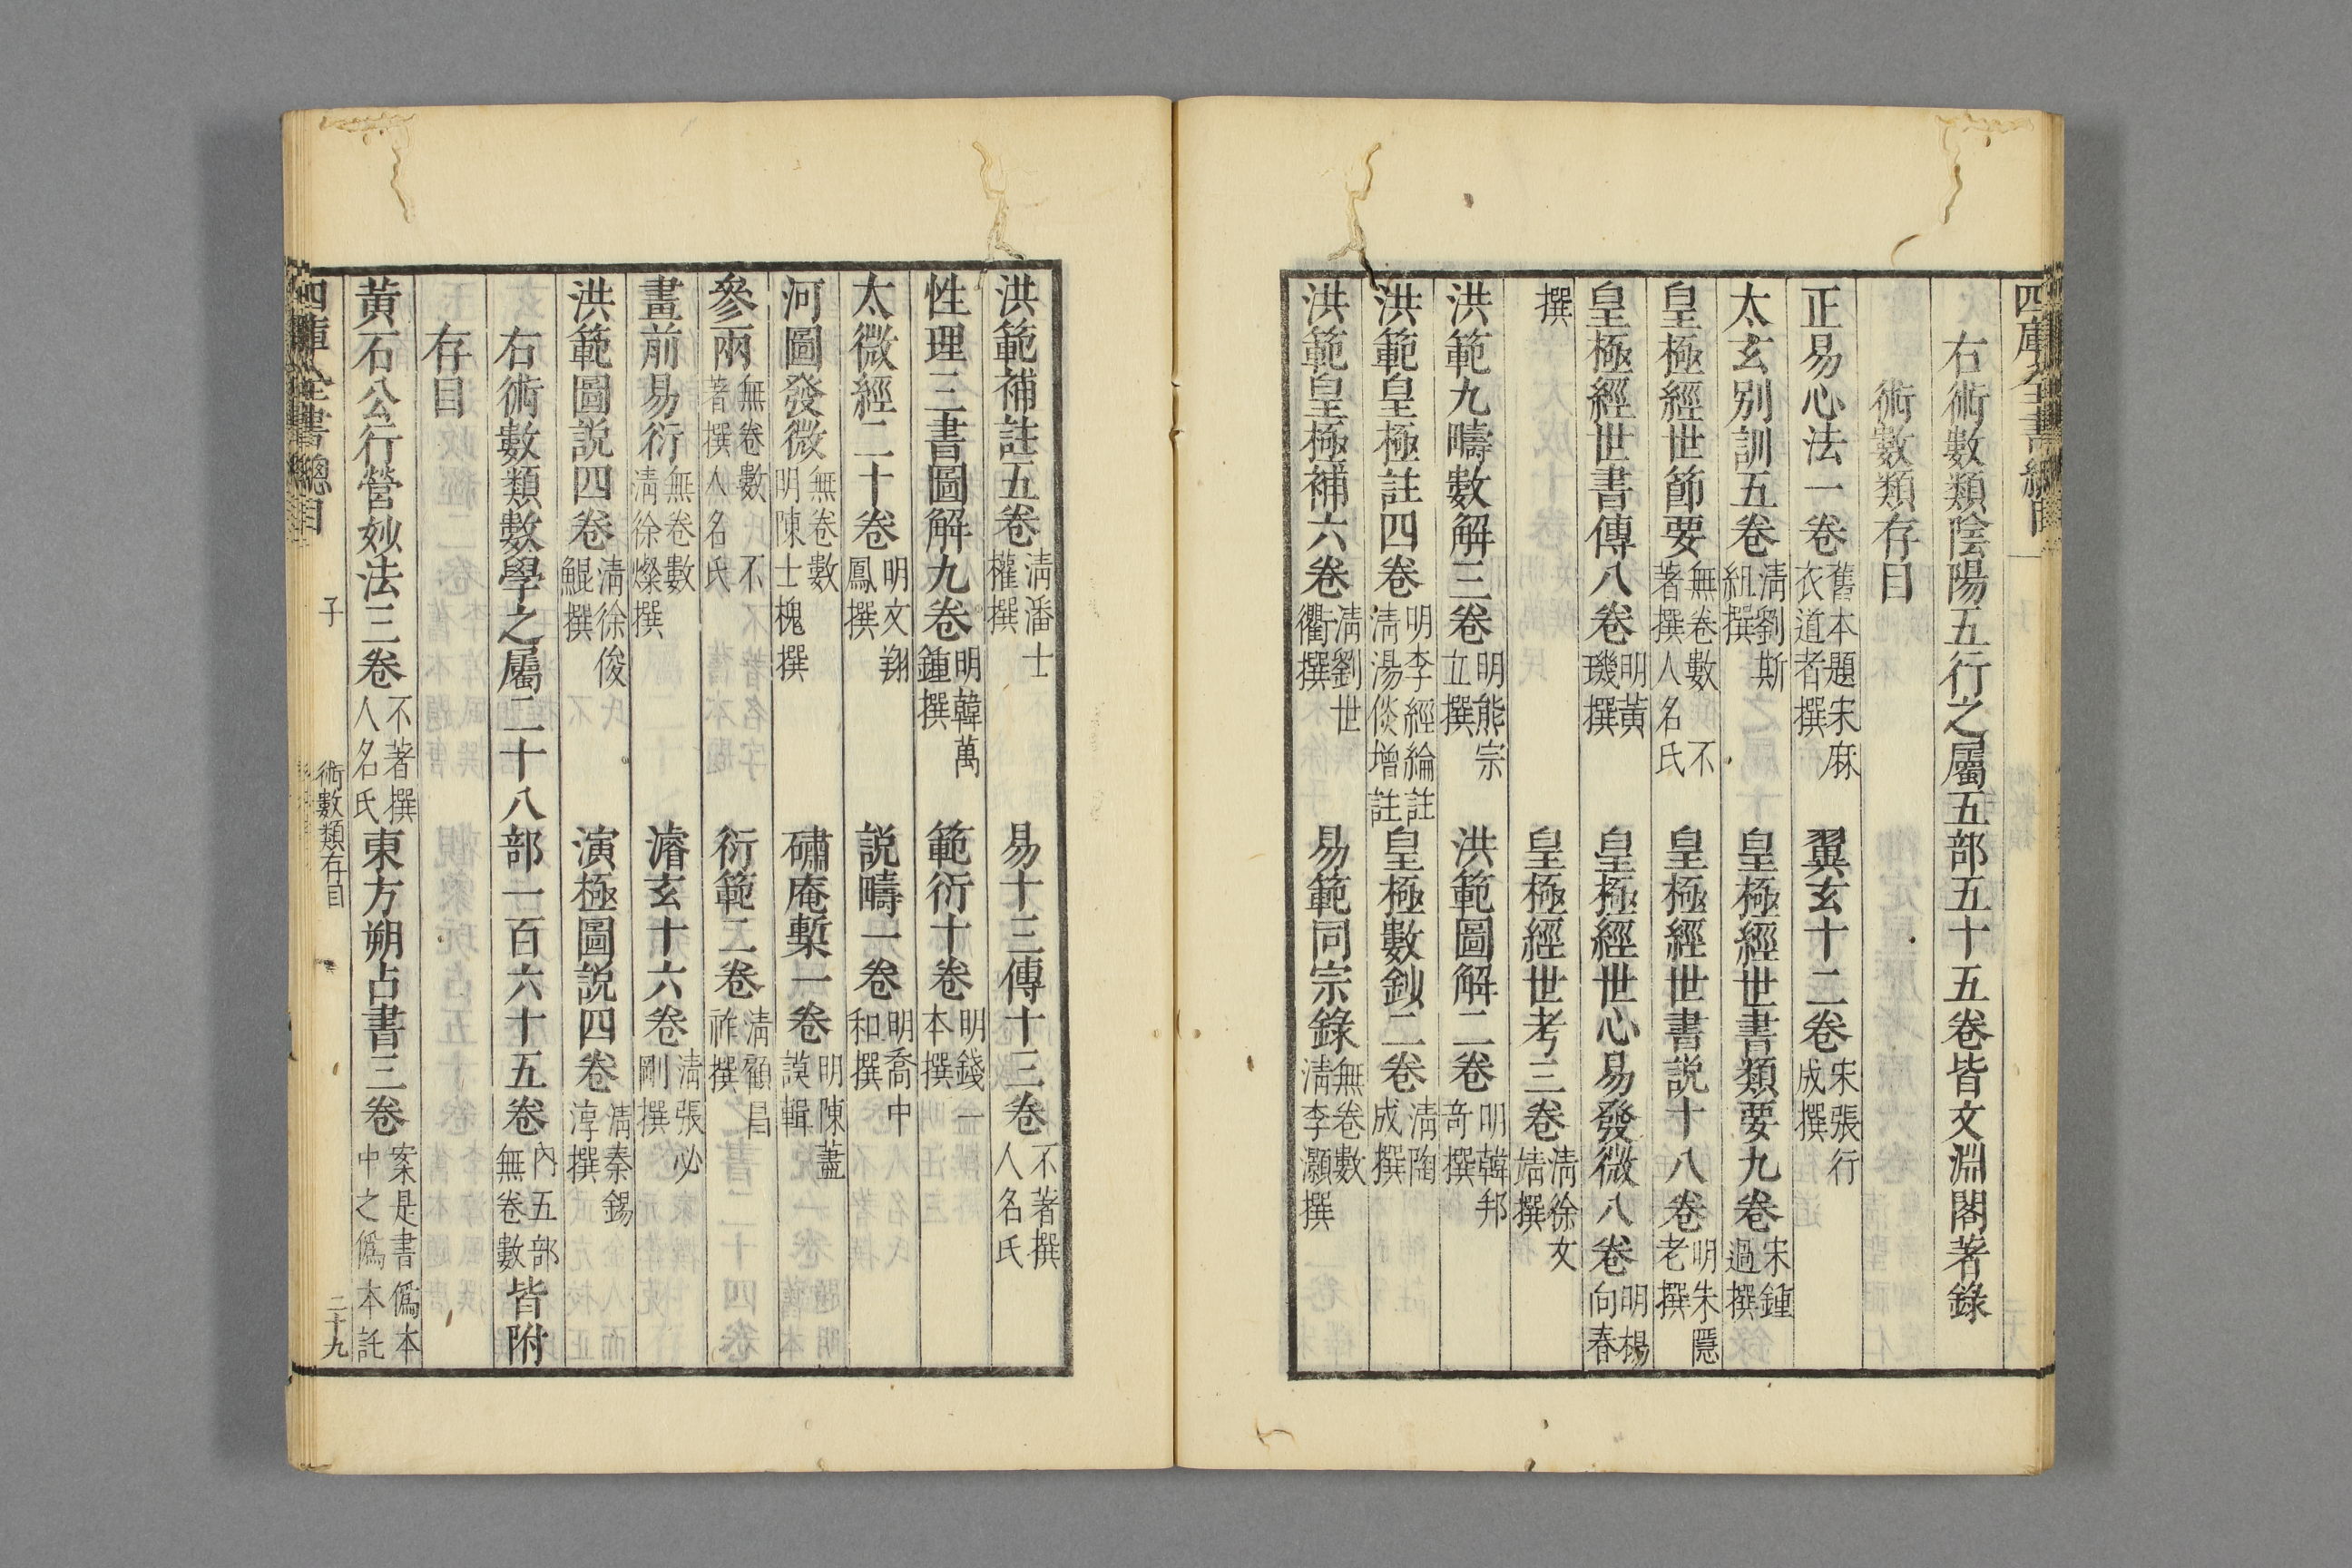 四庫全書總目
右術數類陰陽五行之屬五部五十五卷皆文淵閣著錄
術數類存目
正易心法一卷舊本題宋麻衣道者撰 翼玄十二卷宋張行成撰
太玄別訓五卷淸劉斯組撰 皇極經世書類要九卷宋鍾過撰
皇極經世節要無卷數不著撰人名氏 皇極經世書説十八卷明朱隱老撰
皇極經世書傳八卷明黃璣撰 皇極經世心易發微八卷明楊向春
撰 皇極經世考三卷淸徐文靖撰
洪範九疇數解三卷明熊宗立撰 洪範圖解二卷明韓邦奇撰
洪範皇極註四卷明李經綸註淸湯倓增註 皇極數鈔二卷淸陶成撰
洪範皇極補六卷淸劉世衢撰 易範同宗錄無卷數淸李灝撰
洪範補註五卷淸潘士權撰 易十三傳十三卷不著撰人名氏
性理三書圖解九卷明韓萬鍾撰 範衍十卷明錢一本撰
太微經二十卷明文翔鳳撰 説疇一卷明喬中和撰
河圖發微無卷數明陳士槐撰 磠庵槧一卷明陳藎謨輯
參兩無卷數不著撰人名氏 衍範二卷淸顧昌祚撰
畫前易衍無卷數淸徐燦撰 濬玄十六卷淸張必剛撰
洪範圖説四卷淸徐俊鯤撰 演極圖説四卷淸秦錫淳撰
右術數類數學之屬二十八部一百六十五卷內五部無卷數皆附
存目
黃石公行營妙法三卷不著撰人名氏 東方朔占書三卷案是書僞本中之僞本託
四庫全書總目 子 術數類存目 二十九